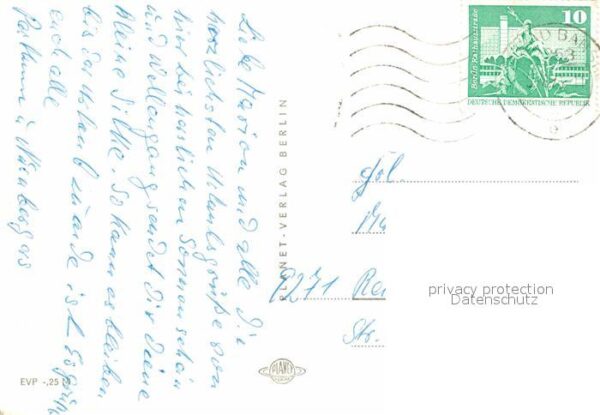 Liebe Marion und alle Die
herzlichsten Urlaubsgrüße von
hier bei herrlichem Sonnenschein
und Wellengang sendet Dir Deine
kleine Silke. So kann es bleiben
bis der Urlaub zu Ende ist. Es grüßen
euch alle
PLANET-VERLAG BERLIN
EVP -,25 M
PLANET
10
Berlin Rathausstraße
DEUTSCHE DEMOKRATISCHE REPUBLIK
Föl.
Ma
9271 Re
Str.
privacy protection
Datenschutz